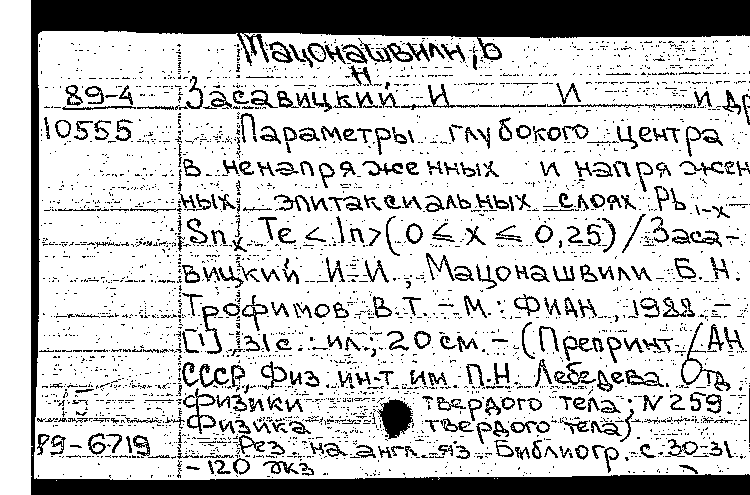 Мацонашвили, Б
Н.
89-4 Засавицкий, И И и др
10555 Параметры глубокого центра
в ненапряженных и напряжен
ных эпитаксиальных слоях Pb 1-x
Sn x Te < In > (0 ≤ x ≤ 0,25) / Заса-
вицкий И.И., Мацонашвили Б.Н.
Трофимов В.Т. - М.: ФИАН, 1988. -
[1], 31 с.: ил.; 20 см. - (Препринт / АН
СССР, Физ. ин-т им. П.Н Лебедева. Отд.
15 физики твердого тела; N 259.
Физика твердого тела)
89-6719 Рез. на англ. яз. Библиогр. с. 30-31
- 120 экз